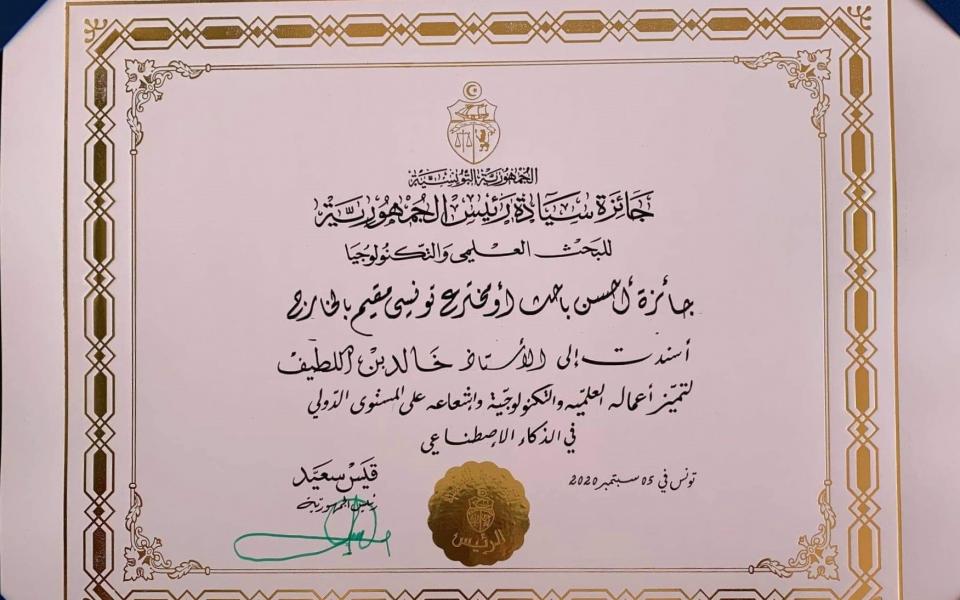 الجمهورية التونسية
جائزة سيادة رئيس الجمهورية
للبحث العلمي والتكنولوجيا
جائزة أحسن باحث أو مخترع تونسي مقيم بالخارج
أسندت إلى الأستاذ خالد بن اللطيف
لتميّز أعماله العلميّة والتكنولوجيّة وإشعاعه على المستوى الدّولي
في الذكاء الإصطناعي
تونس في 05 سبتمبر 2020
قيس سعيّد
رئيس الجمهورية
الرئيس